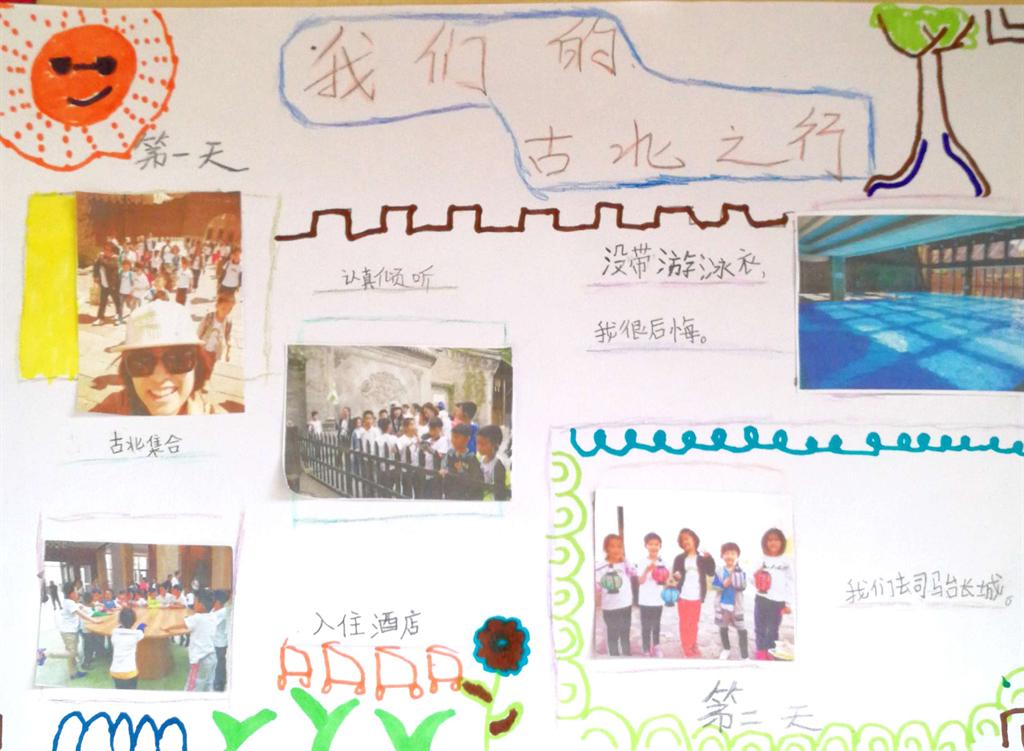 我们的
古北之行
第一天
认真倾听
没带游泳衣,
我很后悔。
古北集合
入住酒店
我们去司马台长城。
第二天